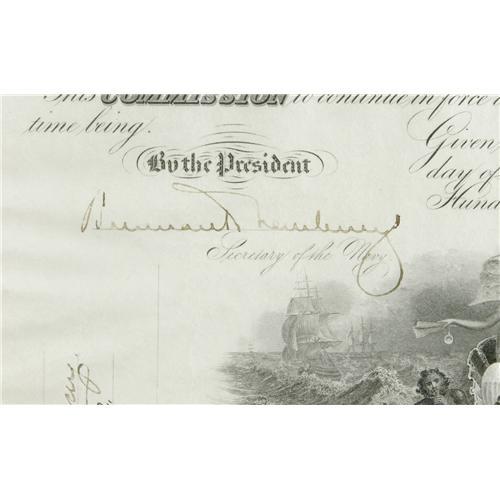 This COMMISSION to continue in force
time being.
Given
day of
Hund
By the President
Secretary of the Navy